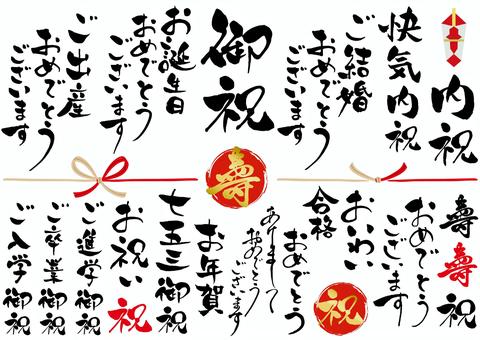 内祝
快気内祝
ご結婚
おめでとう
ございます
御祝
お誕生日
おめでとう
ございます
ご出産
おめでとう
ございます
壽
壽
壽
祝
おめでとう
ございます
おいわい
合格
おめでとう
祝
あけまして
おめでとう
ございます
お年賀
七五三御祝
お祝い
祝
ご進学御祝
ご卒業御祝
ご入学御祝